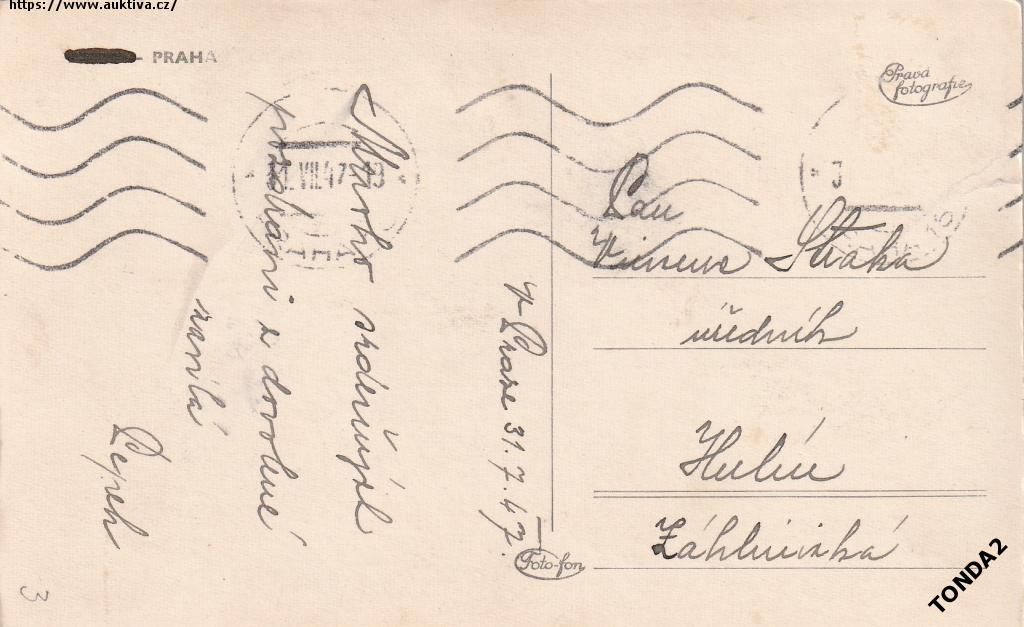 https://www.auktiva.cz/
PRAHA
Pravá
fotografie
31.VII.47-19
V Praze 31.7.47.
Mnoho srdečných
pozdravů z dovolené
zasílá
Pepek
Pan
Straka
úředník
Hulín
Záhlinická
Foto-fon
3
TONDA2